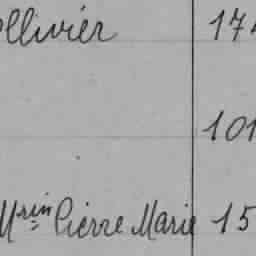 Ollivier 17
101
Mrin Pierre Marie 15